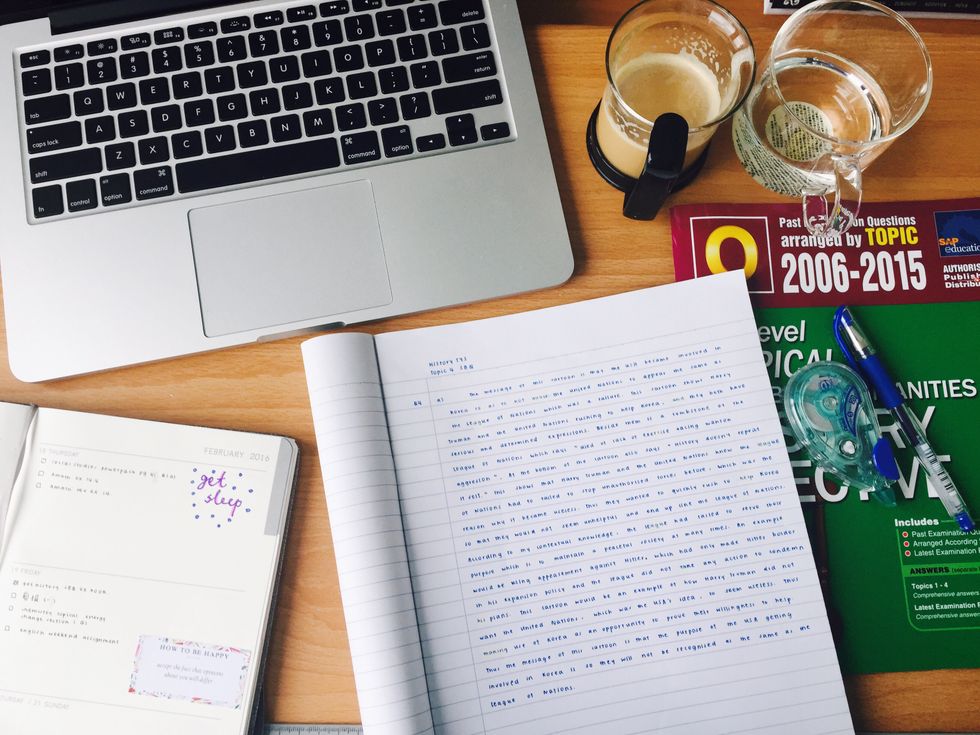 esc
delete
tab
return
caps lock
shift
shift
fn
control
option
command
command
option
Q W E R T Y U I O P
A S D F G H J K L
Z X C V B N M
Past
n Questions
arranged by TOPIC
2006-2015
O
SAP
educatio
AUTHORIS
Publish
Distribu
evel
PICAL
ANITIES
RY
ECTIVE
Includes
Past Examination Qu
Arranged According
Latest Examination
ANSWERS (separate
Topics 1 - 4
Comprehensive answers
Latest Examination
Comprehensive answers
History
Topic 4 SBQ
a) The message of this cartoon is that the USA became involved in
Korea so as to not the United Nations to appear the same as
the League of Nations which was a failure. This cartoon shows Harry
Truman and the United Nations rushing to help Korea, and they both have
serious and determined expressions. Beside them is a tombstone of the
League of Nations which says "died of lack of exercise facing wanton
aggression". At the bottom of the cartoon also says "History doesn't repeat
itself". This shows that Harry Truman and the United Nations knew the League
of Nations had to failed to stop unauthorised forces before, which was the
reason why it became useless. Thus they wanted to quickly rush to help Korea
so that they would not seem unhelpful and end up like the League of Nations.
According to my contextual knowledge, the League had failed to serve their
purpose which is to maintain a peaceful society as many times. An example
would be using appeasement against Hitler, which had only made Hitler bolder
in his expansion policy and the League did not take any action to condemn
his plans. This cartoon would be an example of how Harry Truman did not
want the United Nations, which was the USA's idea, to seem useless. Thus
making use of Korea as an opportunity to prove their willingness to help.
Thus the message of this cartoon is that the purpose of the USA getting
involved in Korea is so they will not be recognised as the same as the
League of Nations.
18 THURSDAY
FEBRUARY 2016
get
sleep
19 FRIDAY
english weekend assignment
HOW TO BE HAPPY
accept the fact that opinions
about you will differ
21 SUNDAY